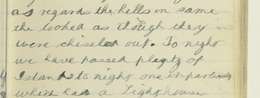 as regards the hills in some
the looked as though they
were chiseled out. To night
we have passed plenty of
Islands to night one in particular
which has a Lighthouse